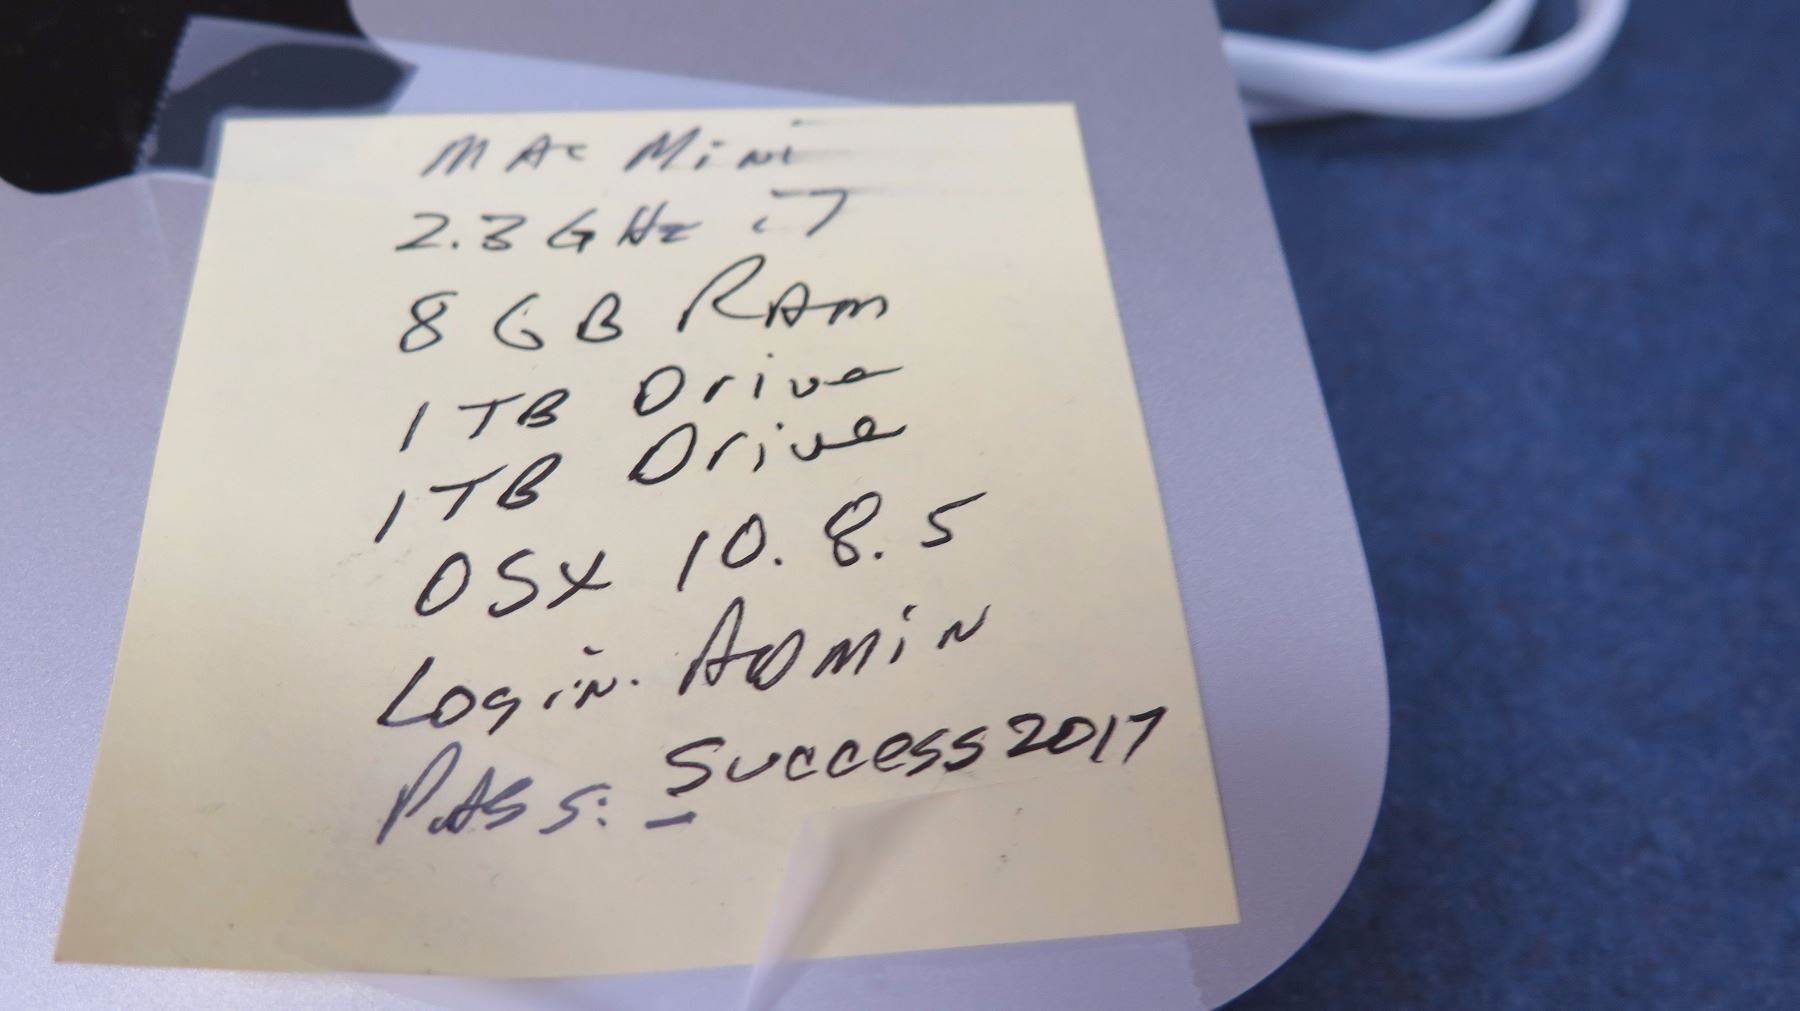 MAC Mini
2.3 GHz i7
8 GB RAM
1 TB Drive
1 TB Drive
OSX 10.8.5
Login. ADMiN
PASS: Success2017